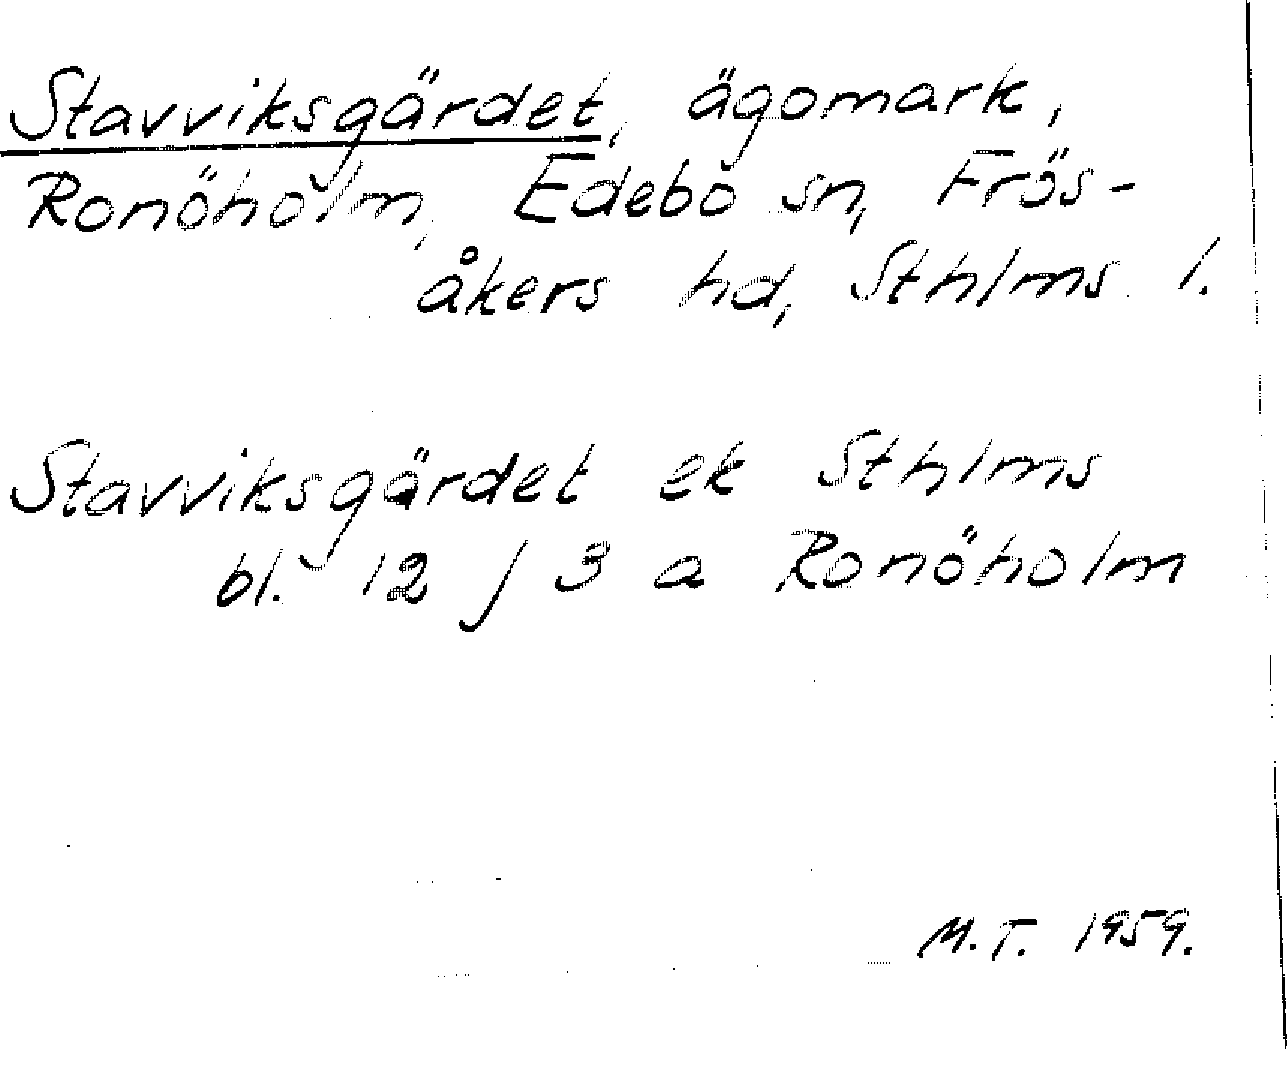 Stavviksgärdet, ägomark,
Ronöholm, Edebo sn, Frös-
åkers hd, Sthlms l.
Stavviksgärdet ek Sthlms
bl. 12 j 3 a Ronöholm
M.T. 1959.